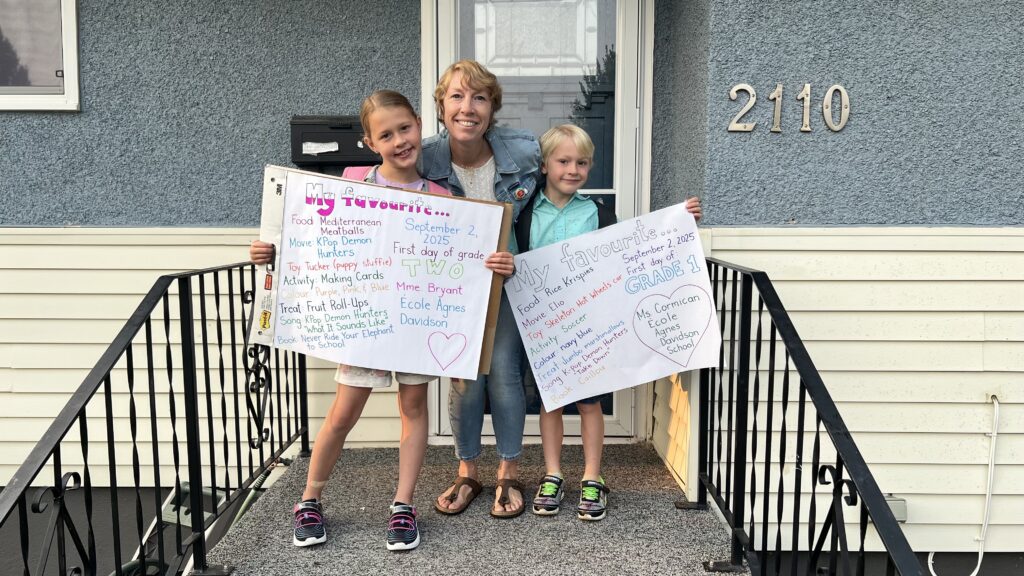 2110
3M
Post-it
My favourite...
Food Mediterranean
Meatballs
Movie: KPop Demon
Hunters
Toy Tucker (puppy stuffie)
Activity Making Cards
Colour Purple, Pink & Blue
Treat Fruit Roll-Ups
Song KPop Demon Hunters
"What It Sounds Like"
Book: Never Ride Your Elephant
to School
September 2,
2025
First day of grade
TWO
Mme. Bryant
École Agnes
Davidson
My favourite...
Food Rice Krispies
Movie Elio
Toy Skeleton Hot Wheels car
Activity Soccer
Colour navy blue
Treat Jumbo marshmallows
Song K-pop Demon Hunters
"Take Down"
Book Caillou
September 2, 2025
First day of
GRADE 1
Ms. Cormican
Ecole
Agnes
Davidson
School